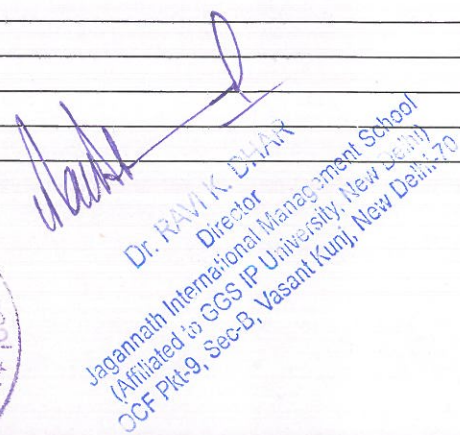 Dr. RAVI K. DHAR
Director
Jagannath International Management School
(Affiliated to GGS IP University, New Delhi)
OCF Pkt-9, Sec-B, Vasant Kunj, New Delhi-70